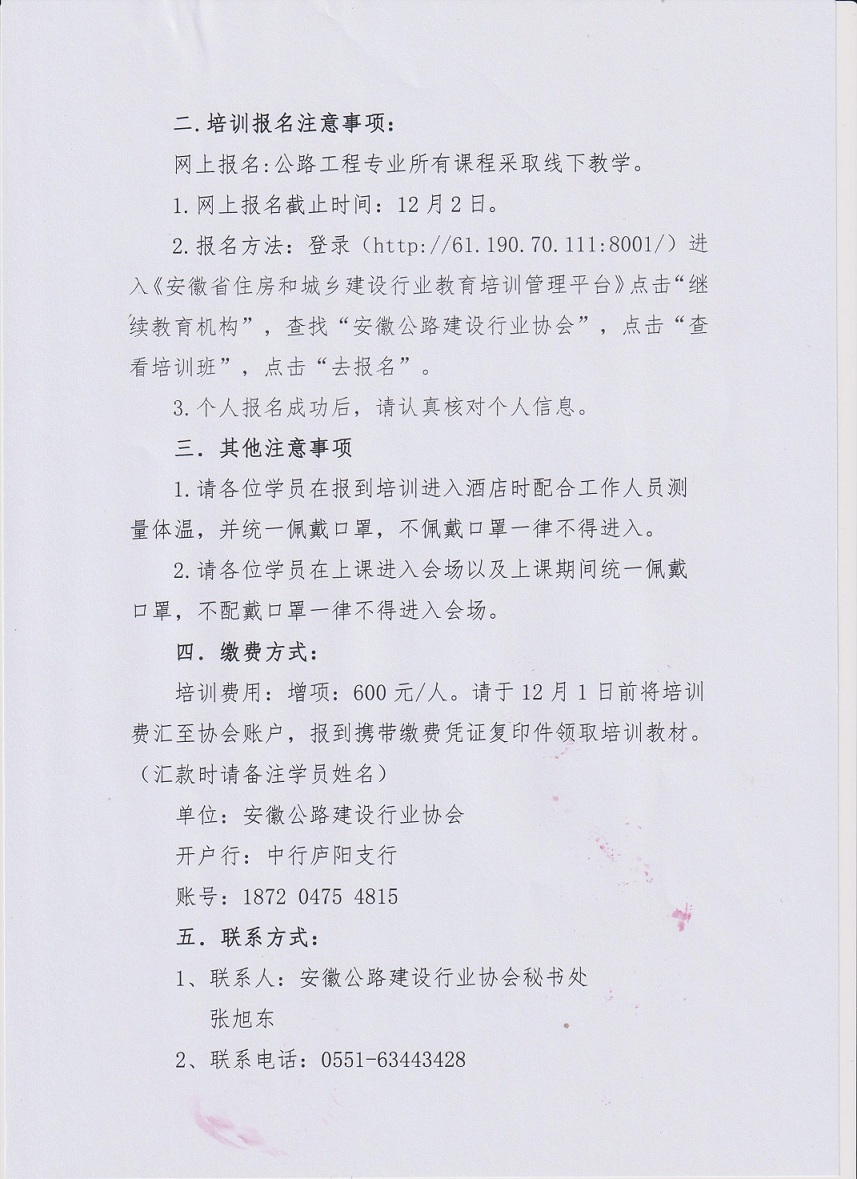 二.培训报名注意事项：
网上报名:公路工程专业所有课程采取线下教学。
1.网上报名截止时间：12月2日。
2.报名方法：登录（http://61.190.70.111:8001/）进
入《安徽省住房和城乡建设行业教育培训管理平台》点击“继
续教育机构”，查找“安徽公路建设行业协会”，点击“查
看培训班”，点击“去报名”。
3.个人报名成功后，请认真核对个人信息。
三．其他注意事项
1.请各位学员在报到培训进入酒店时配合工作人员测
量体温，并统一佩戴口罩，不佩戴口罩一律不得进入。
2.请各位学员在上课进入会场以及上课期间统一佩戴
口罩，不配戴口罩一律不得进入会场。
四．缴费方式：
培训费用：增项：600元/人。请于12月1日前将培训
费汇至协会账户，报到携带缴费凭证复印件领取培训教材。
（汇款时请备注学员姓名）
单位：安徽公路建设行业协会
开户行：中行庐阳支行
账号：1872 0475 4815
五．联系方式：
1、联系人：安徽公路建设行业协会秘书处
张旭东
2、联系电话：0551-63443428